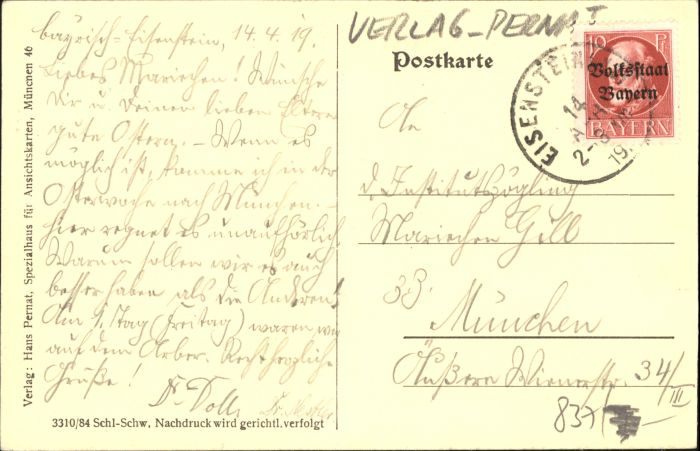 VERLAG-PERNAT
Bayrisch-Eisenstein, 14.4.19.
Liebes Mariechen! Wünsche
Dir u. Deinen lieben Eltern
gute Ostern. – Wenn es
möglich ist, komme ich in der
Osterwoche nach München. –
Hier regnet es unaufhörlich.
Warum sollen wir es auch
besser haben als die Anderen!
Am 1. Tag (Freitag) waren wir
auf dem Arber. Recht herzliche
Grüße!
Dr. Doll
Verlag: Hans Pernat, Spezialhaus für Ansichtskarten, München 46
3310/84 Schl-Schw, Nachdruck wird gerichtl. verfolgt
Postkarte
10 Pf
Volksstaat
Bayern
BAYERN
EISENSTEIN
14
2-3
19
An
d. Institutszögling
Mariechen Gill
zZ.
München
Äußere Wienerstr. 34/III
837